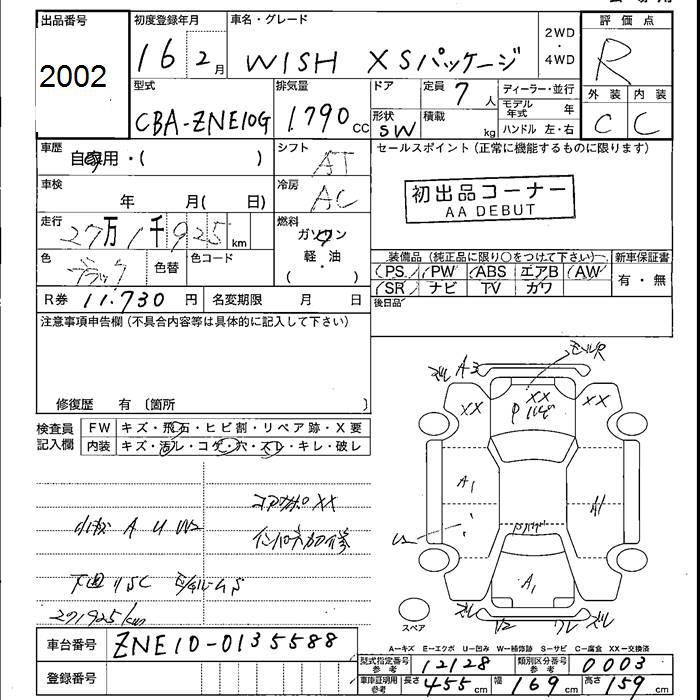 出品番号
2002
初度登録年月
16 2月
車名・グレード
WISH XSパッケージ
2WD
・
4WD
評価点
R
外装 内装
C C
型式
CBA-ZNE10G
排気量
1.790 cc
ドア
形状
SW
定員 7 人
積載 kg
ディーラー・並行
モデル年式 年
ハンドル 左・右
車歴
自家用・( )
シフト
AT
セールスポイント (正常に機能するものに限ります)
初出品コーナー
AA DEBUT
車検
年 月( 日)
冷房
AC
走行
27万1千925km
燃料
ガソリン
軽・油
( )
色
ブラック
色替
色コード
装備品 (純正品に限り○をつけて下さい)
PS PW ABS エアB AW
SR ナビ TV カワ
新車保証書
有・無
R券 11.730 円
名変期限 月 日
後日品
注意事項申告欄 (不具合内容等は具体的に記入して下さい)
修復歴 有 〔箇所 〕
検査員記入欄
FW キズ・飛石・ヒビ割・リペア跡・X要
内装 キズ・汚レ・コゲ・穴・スレ・キレ・破レ
A U W2
コアサポ XX
下廻りSC
271925km
A3
XX
XX
XX
P
A1
A1
A1
U2
スペア
車台番号 ZNE10-0135588
登録番号
A−キズ E−エクボ U−凹み W−補修跡 S−サビ C−腐食 XX−交換済
型式指定番号 参考 12128
類別区分番号 参考 0003
車庫証明用 参考 長さ 455 cm 幅 169 cm 高さ 159 cm